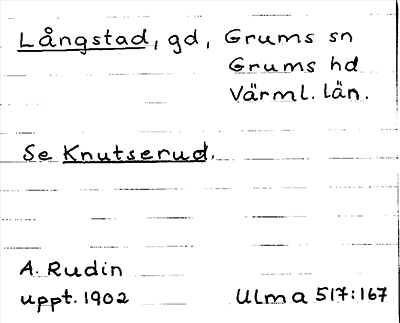 Långstad, gd, Grums sn
Grums hd
Värml. län.
Se Knutserud.
A. Rudin
uppt. 1902 Ulma 517:167